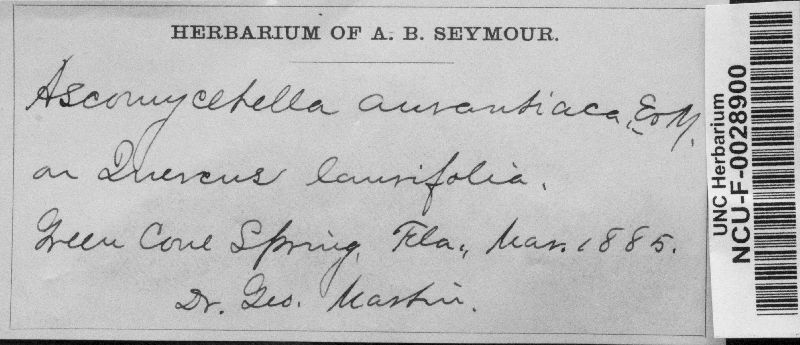 HERBARIUM OF A. B. SEYMOUR.
Ascomycetella aurantiaca, E & M.
on Quercus laurifolia.
Green Cove Spring, Fla., Mar. 1885.
Dr. Geo. Martin.
UNC Herbarium
NCU-F-0028900